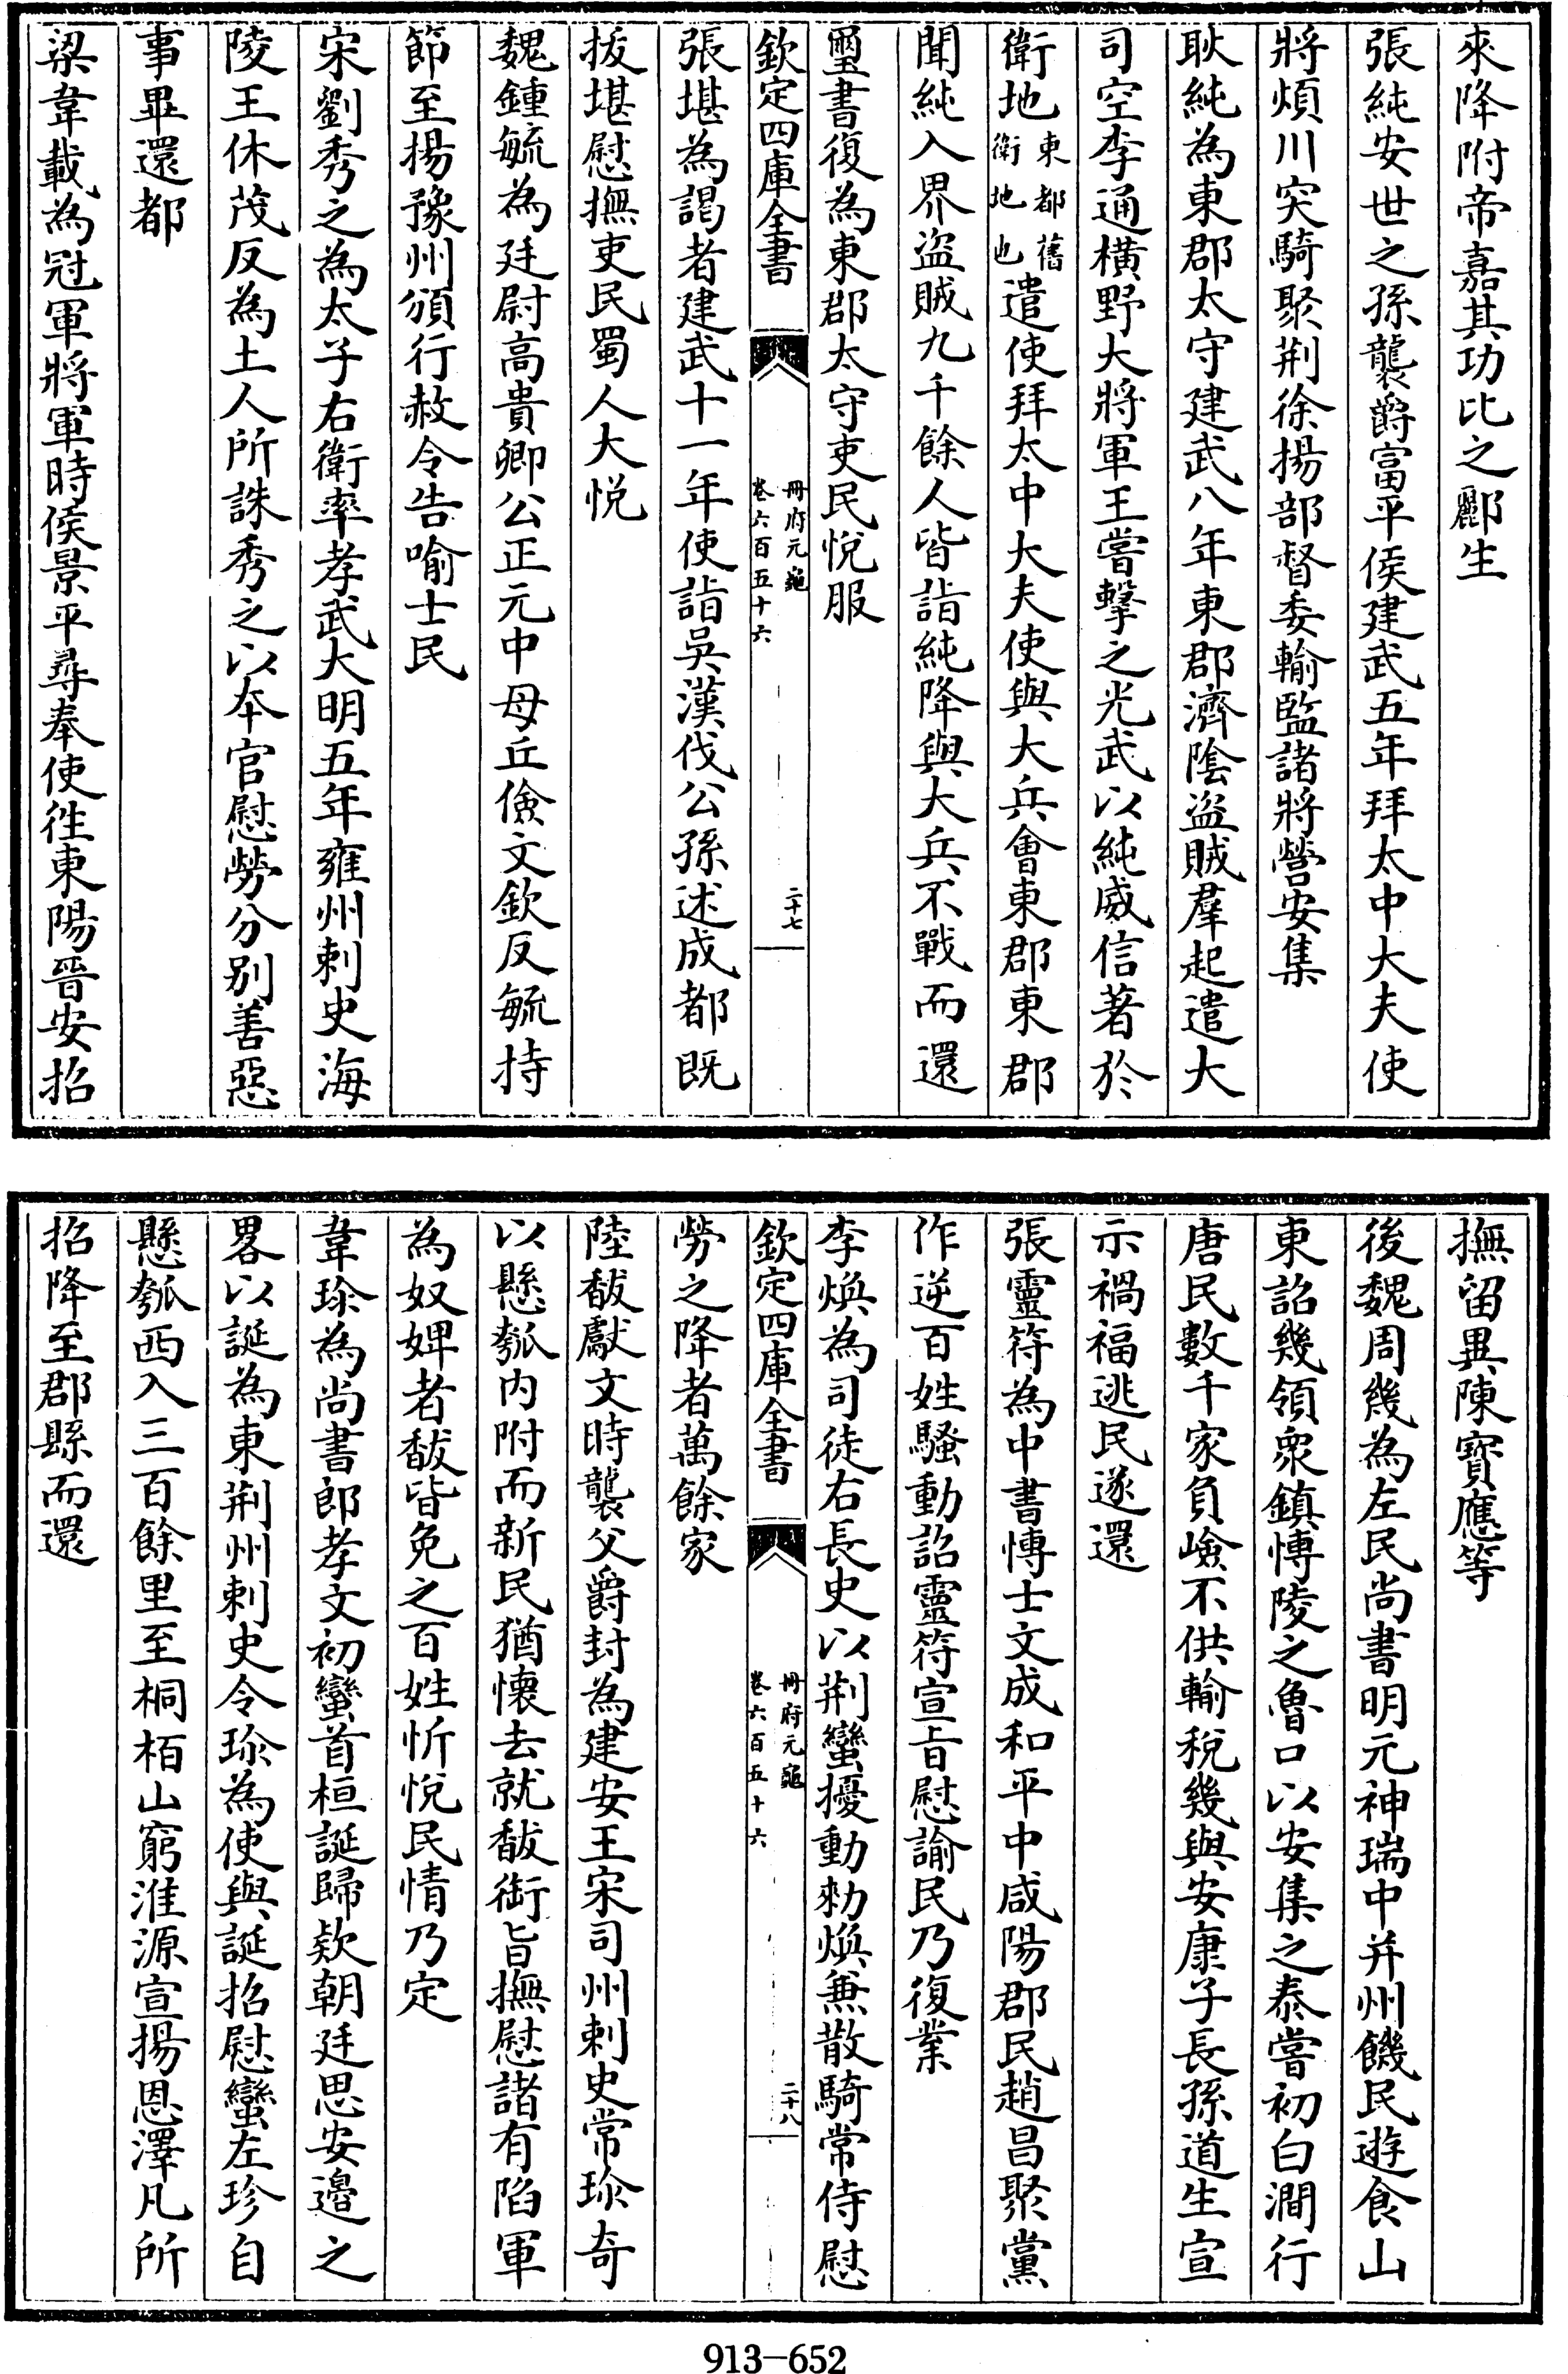 來降附帝嘉其功比之酈生
張純安世之孫襲爵富平侯建武五年拜太中大夫使
將潁川突騎聚荆徐揚部督委輸監諸將營安集
耿純為東郡太守建武八年東郡濟陰盗賊羣起遣大
司空李通横野大將軍王嘗擊之光武以純威信著於
衛地東都舊衛地也遣使拜太中大夫使與大兵會東郡東郡
聞純入界盗賊九千餘人皆詣純降與大兵不戰而還
璽書復為東郡太守吏民悅服
欽定四庫全書
冊府元龜
卷六百五十六
二十七
張堪為謁者建武十一年使詣吳漢伐公孫述成都既
拔堪慰撫吏民蜀人大悅
魏鍾毓為廷尉高貴卿公正元中母丘儉文欽反毓持
節至揚豫州頒行赦令告喻士民
宋劉秀之為太子右衛率孝武大明五年雍州刺史海
陵王休茂反為土人所誅秀之以本官慰勞分别善惡
事畢還都
梁韋載為冠軍將軍時侯景平尋奉使徃東陽晉安招
撫留異陳寳應等
後魏周幾為左民尚書明元神瑞中并州饑民遊食山
東詔幾領衆鎮愽陵之魯口以安集之泰嘗初白澗行
唐民數千家負嶮不供輸稅幾與安康子長孫道生宣
示禍福逃民遂還
張靈符為中書愽士文成和平中咸陽郡民趙昌聚黨
作逆百姓騷動詔靈符宣旨慰諭民乃復業
李煥為司徒右長史以荆蠻擾動勑煥兼散騎常侍慰
欽定四庫全書
冊府元龜
卷六百五十六
二十八
勞之降者萬餘家
陸馛獻文時襲父爵封為建安王宋司州刺史常珎奇
以懸瓠内附而新民猶懷去就馛銜旨撫慰諸有陷軍
為奴婢者馛皆免之百姓忻悅民情乃定
韋珎為尚書郎孝文初蠻首桓誕歸欵朝廷思安邉之
畧以誕為東荆州刺史令珎為使與誕招慰蠻左珍自
懸瓠西入三百餘里至桐栢山窮淮源宣揚恩澤凡所
招降至郡縣而還
913-652